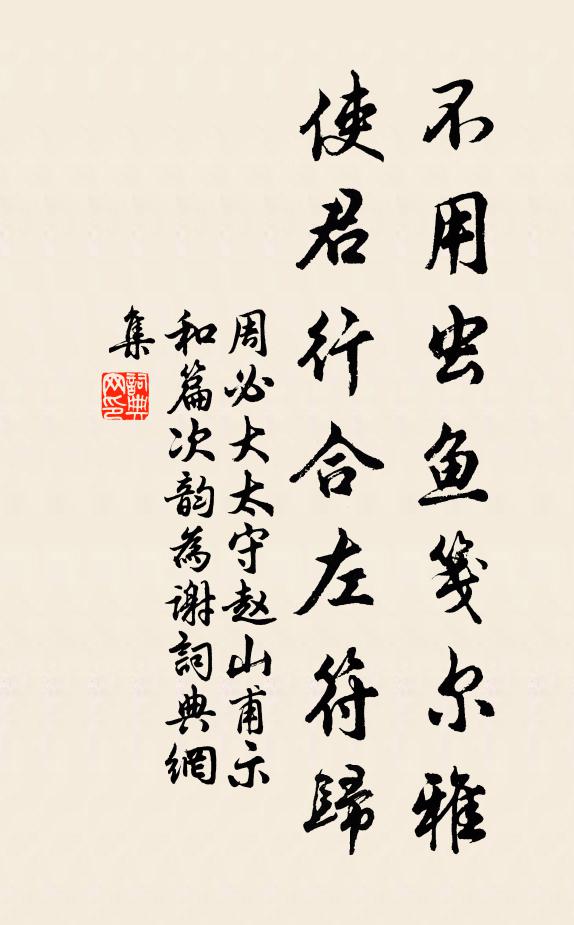 不用虫鱼笺尔雅
使君行合左符歸
周必大太守赵山甫示
和篇次韵為谢詞典網
集
詞典
网印